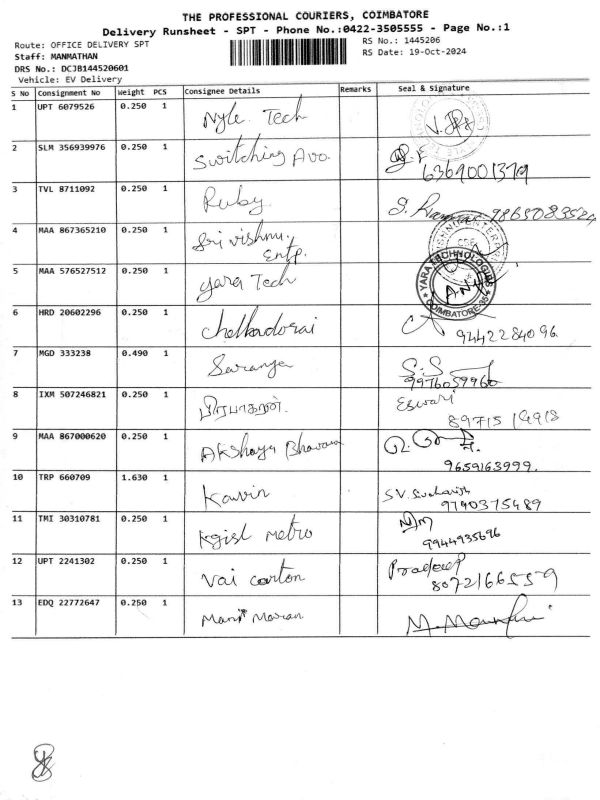 THE PROFESSIONAL COURIERS, COIMBATORE
Delivery Runsheet - SPT - Phone No.:0422-3505555 - Page No.:1
Route: OFFICE DELIVERY SPT
RS No.: 1445206
Staff: MANMATHAN
RS Date: 19-Oct-2024
DRS No.: DCJB144520601
Vehicle: EV Delivery
S No Consignment No Weight PCS Consignee Details Remarks Seal & Signature
1 UPT 6079526 0.250 1 Nyle Tech
2 SLM 356939976 0.250 1 Switching Avo. 6369001379
3 TVL 8711092 0.250 1 Ruby
4 MAA 867365210 0.250 1 Sri Vishnu.
Entp.
5 MAA 576527512 0.250 1 Yara Tech YARA TECHNOLOGIES
6 HRD 20602296 0.250 1 9442284096
7 MGD 333238 0.490 1 Saranya S.S
9976059960
8 IXM 507246821 0.250 1 பிரபாகரன். Eswari
9 MAA 867000620 0.250 1 Akshaya Bhavan
9659163999.
10 TRP 660709 1.630 1 Kavin
9740375489
11 TMI 30310781 0.250 1 Kgisl metro
9944935696
12 UPT 2241302 0.250 1 Vai carton Pradeep
8072166559
13 EDQ 22772647 0.250 1 Mani Maran